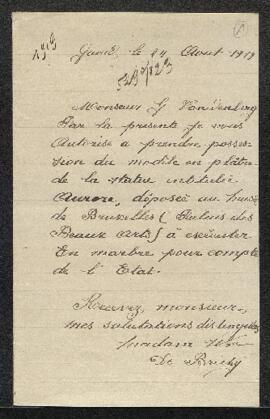 Gand, le 14 Aout 1919
Monsieur G Vandenberg
Par la presente je vous
Autorise à prendre posses-
sion du modèle en plâtre
de la statue intitulée
Aurore, déposée au
de Bruxelles (Palais des
Beaux Arts) à exécuter
En marbre pour compte
de l'Etat.
Recevez, monsieur,
mes salutations distinguées
De